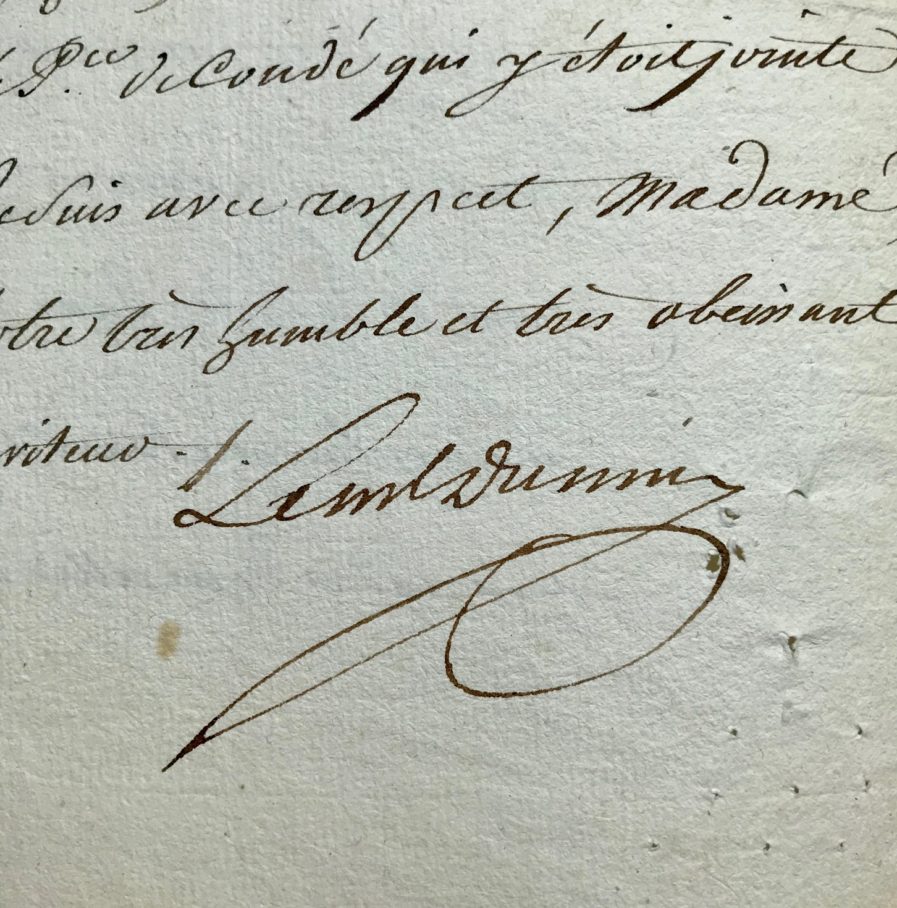 P.ce de Condé qui y étoit jointe
suis avec respect, Madame,
otre très humble et très obeissant
viteur.